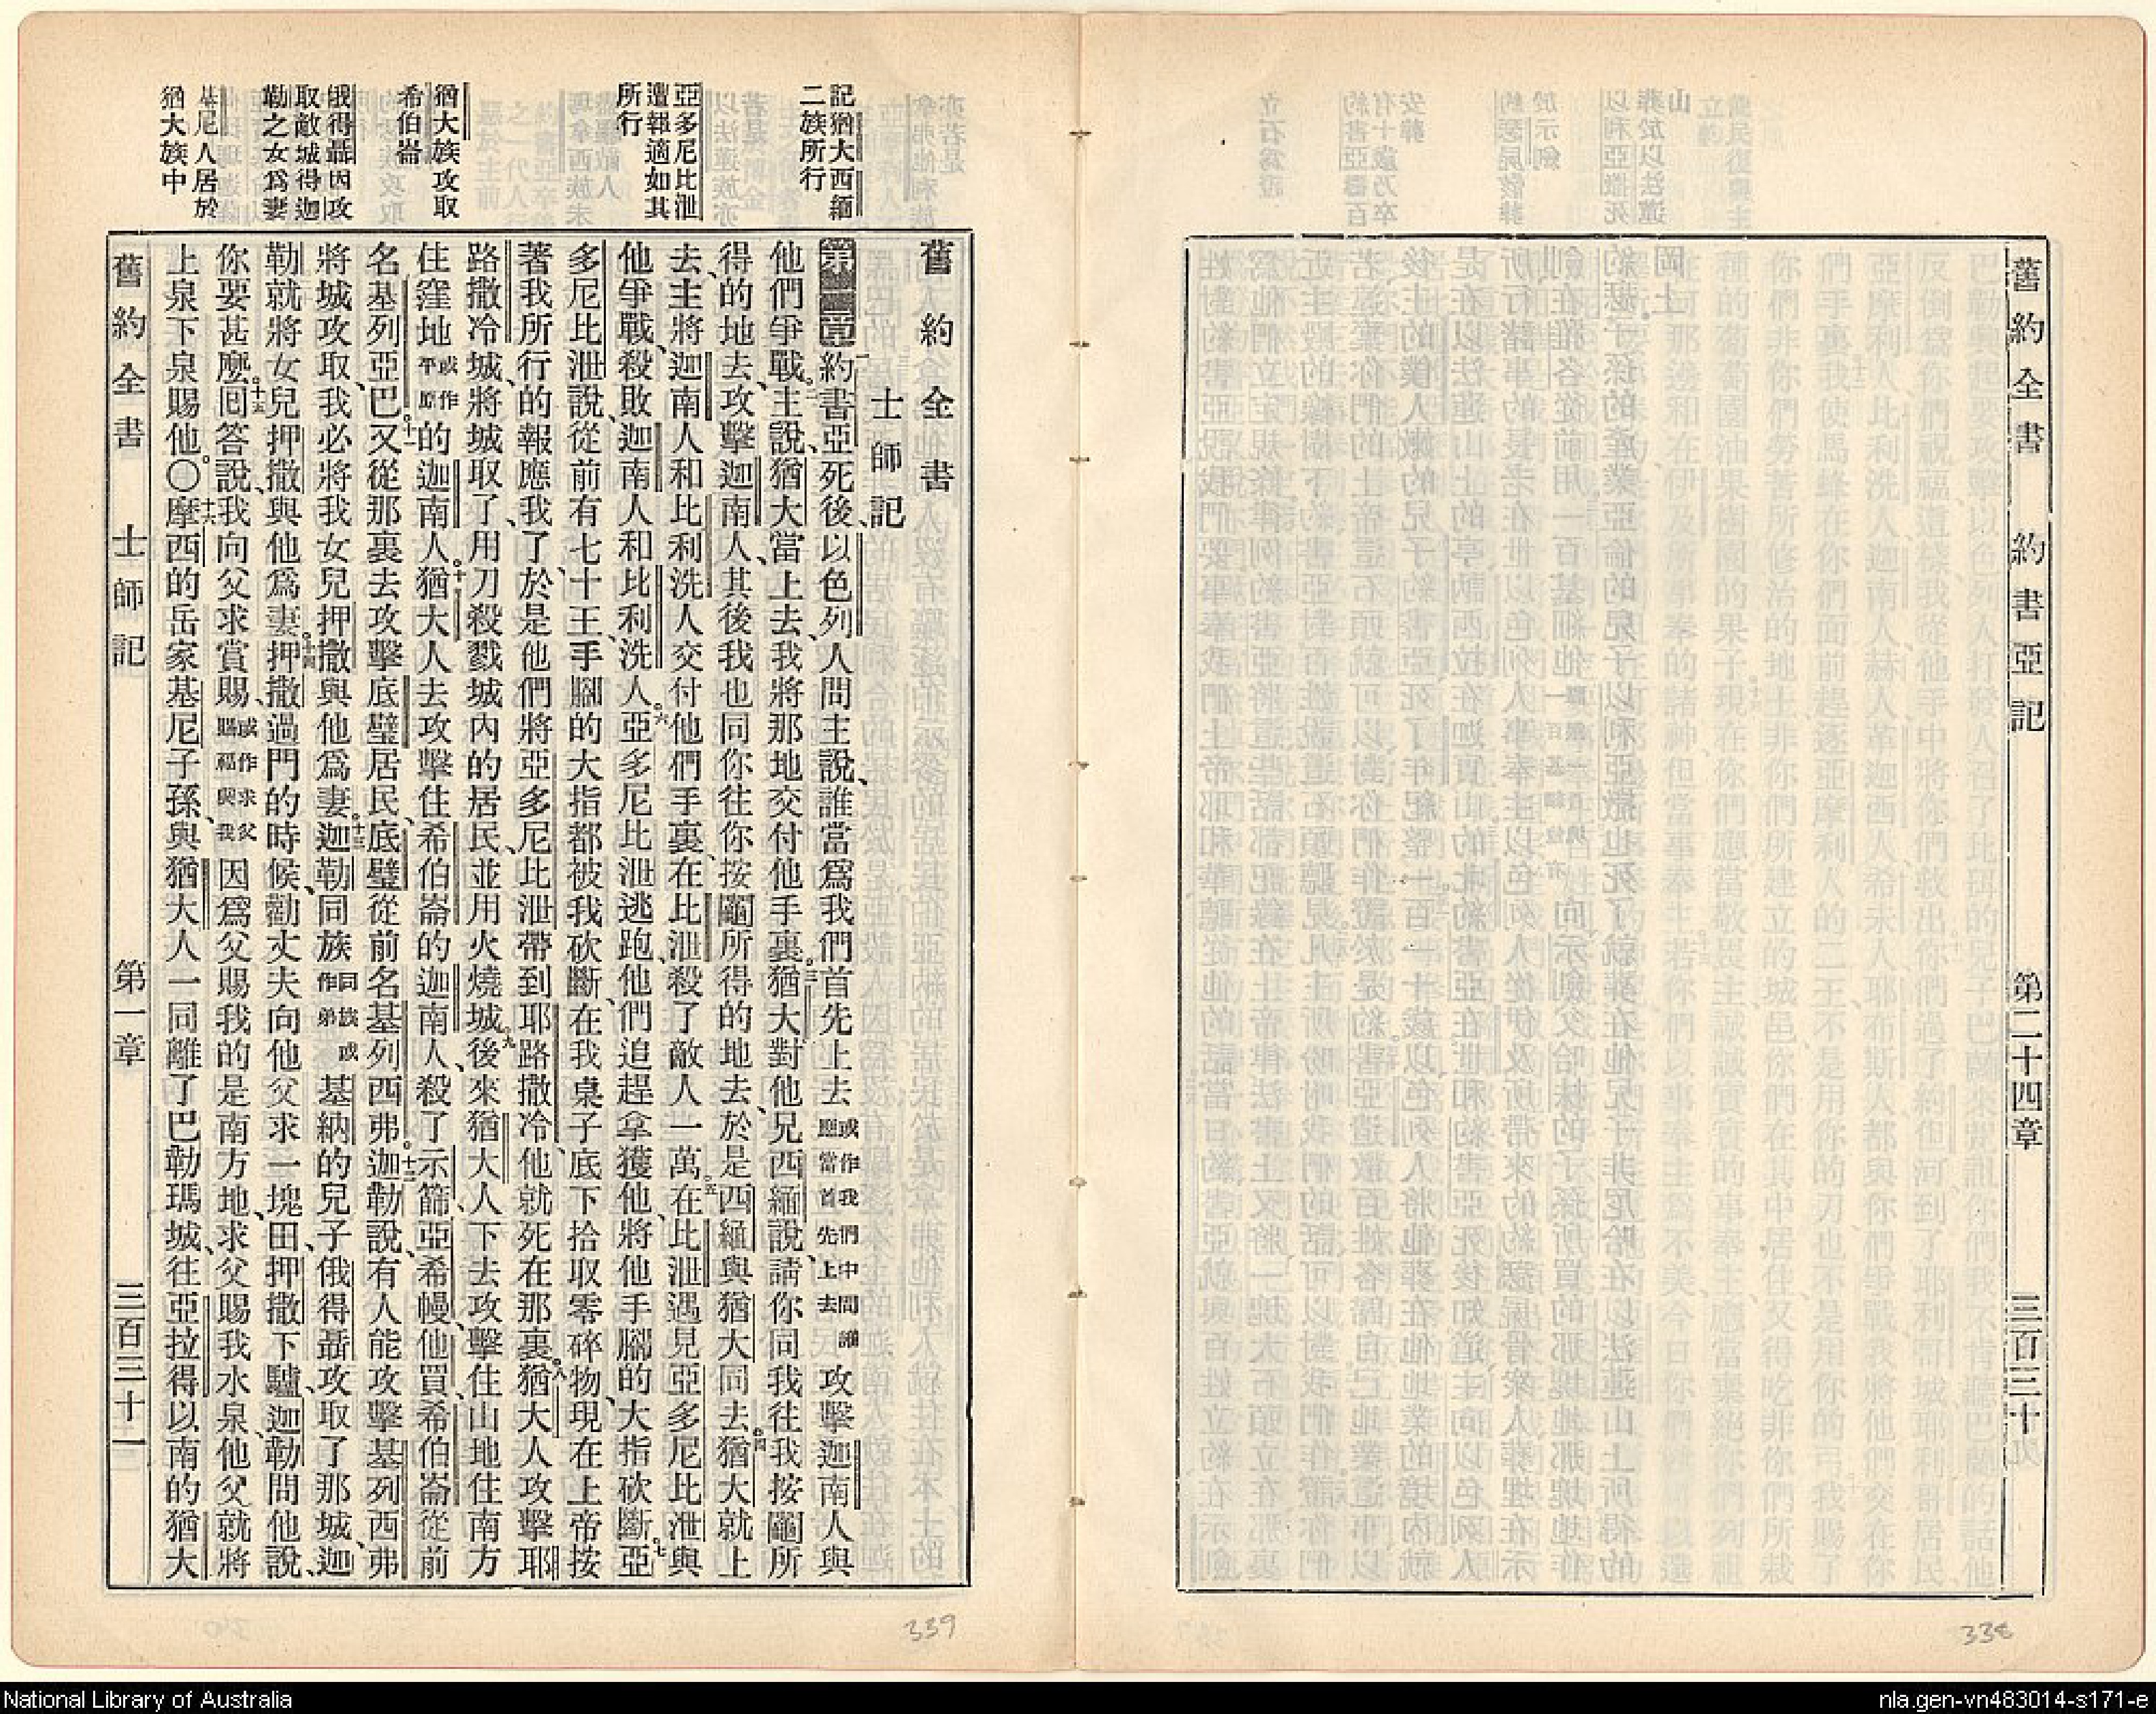 舊約全書　約書亞記　第二十四章　三百三十
338
記猶大西緬
二族所行
亞多尼比泄
遭報適如其
所行
猶大族攻取
希伯崙
俄得聶因攻
取敵城得迦
勒之女爲妻
基尼人居於
猶大族中
舊約全書
士師記
第一章一約書亞死後、以色列人問主說、誰當爲我們首先上去或作我們中間誰應當首先上去攻擊迦南人與
他們爭戰。二主說、猶大當上去、我將那地交付他手裏。三猶大對他兄西緬說、請你同我往我按鬮所
得的地去、攻擊迦南人、其後我也同你往你按鬮所得的地去、於是西緬與猶大同去。四猶大就上
去、主將迦南人和比利洗人交付他們手裏、在比泄殺了敵人一萬。五在比泄遇見亞多尼比泄與
他爭戰、殺敗迦南人和比利洗人。六亞多尼比泄逃跑、他們追趕拿獲他、將他手腳的大指砍斷。七亞
多尼比泄說、從前有七十王、手腳的大指都被我砍斷、在我桌子底下拾取零碎物、現在上帝按
著我所行的報應我了、於是他們將亞多尼比泄帶到耶路撒冷、他就死在那裏。八猶大人攻擊耶
路撒冷城、將城取了、用刀殺戮城內的居民、並用火燒城。九後來猶大人下去攻擊住山地、住南方
住窪地或作平原的迦南人。十猶大人去攻擊住希伯崙的迦南人、殺了示篩、亞希幔、他買、希伯崙從前
名基列亞巴。十一又從那裏去攻擊底璧居民、底璧從前名基列西弗。十二迦勒說、有人能攻擊基列西弗
將城攻取、我必將我女兒押撒與他爲妻。十三迦勒同族同族或作弟基納的兒子俄得聶攻取了那城、迦
勒就將女兒押撒與他爲妻。十四押撒過門的時候、勸丈夫向他父求一塊田、押撒下驢、迦勒問他說、
你要甚麼。十五囘答說、我向父求賞賜、或作求父賜福與我因爲父賜我的是南方地、求父賜我水泉、他父就將
上泉下泉賜他。〇十六摩西的岳家基尼子孫、與猶大人一同離了巴勒瑪城、往亞拉得以南的猶大
舊約全書　士師記　第一章　三百三十一
339
National Library of Australia
nla.gen-vn483014-s171-e